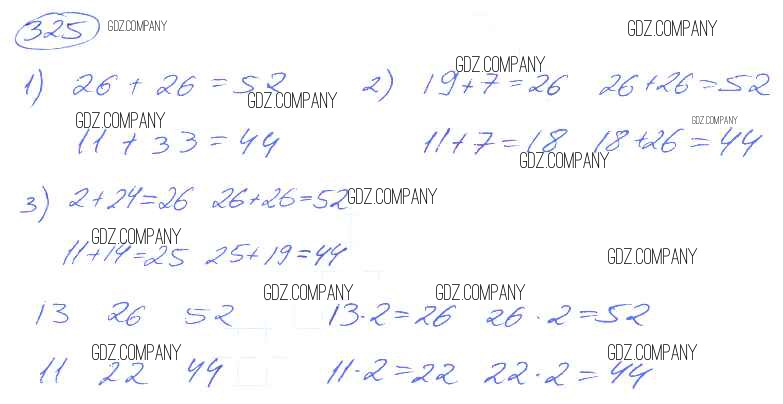 325 GDZ.COMPANY GDZ.COMPANY
GDZ.COMPANY
1) 26 + 26 = 52 2) 19+7=26 26+26=52
GDZ.COMPANY
GDZ.COMPANY GDZ.COMPANY
11 + 33 = 44 11+7=18 18+26=44
GDZ.COMPANY
3) 2+24=26 26+26=52 GDZ.COMPANY
GDZ.COMPANY
11+14=25 25+19=44 GDZ.COMPANY
GDZ.COMPANY GDZ.COMPANY
13 26 52 13·2=26 26·2=52
GDZ.COMPANY GDZ.COMPANY
11 22 44 11·2=22 22·2=44